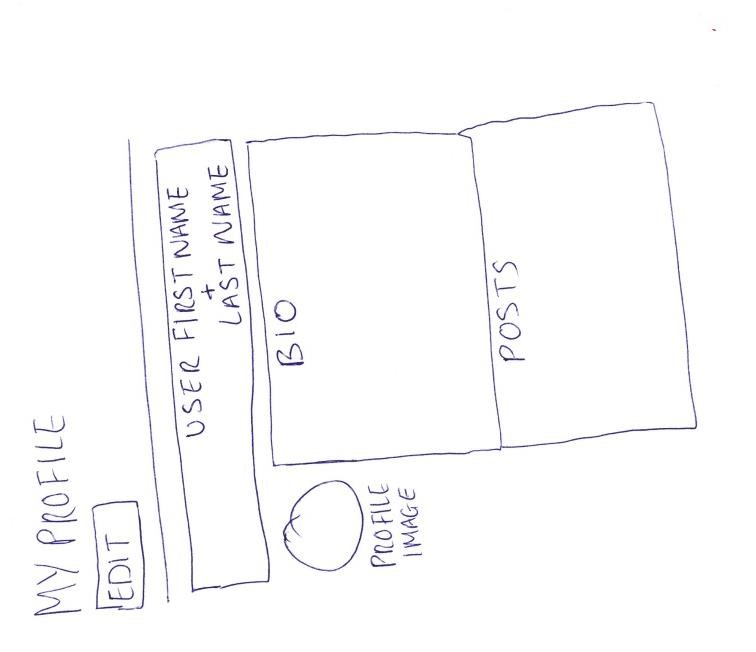 MY PROFILE
EDIT
USER FIRST NAME
+
LAST NAME
BIO
PROFILE
IMAGE
POSTS